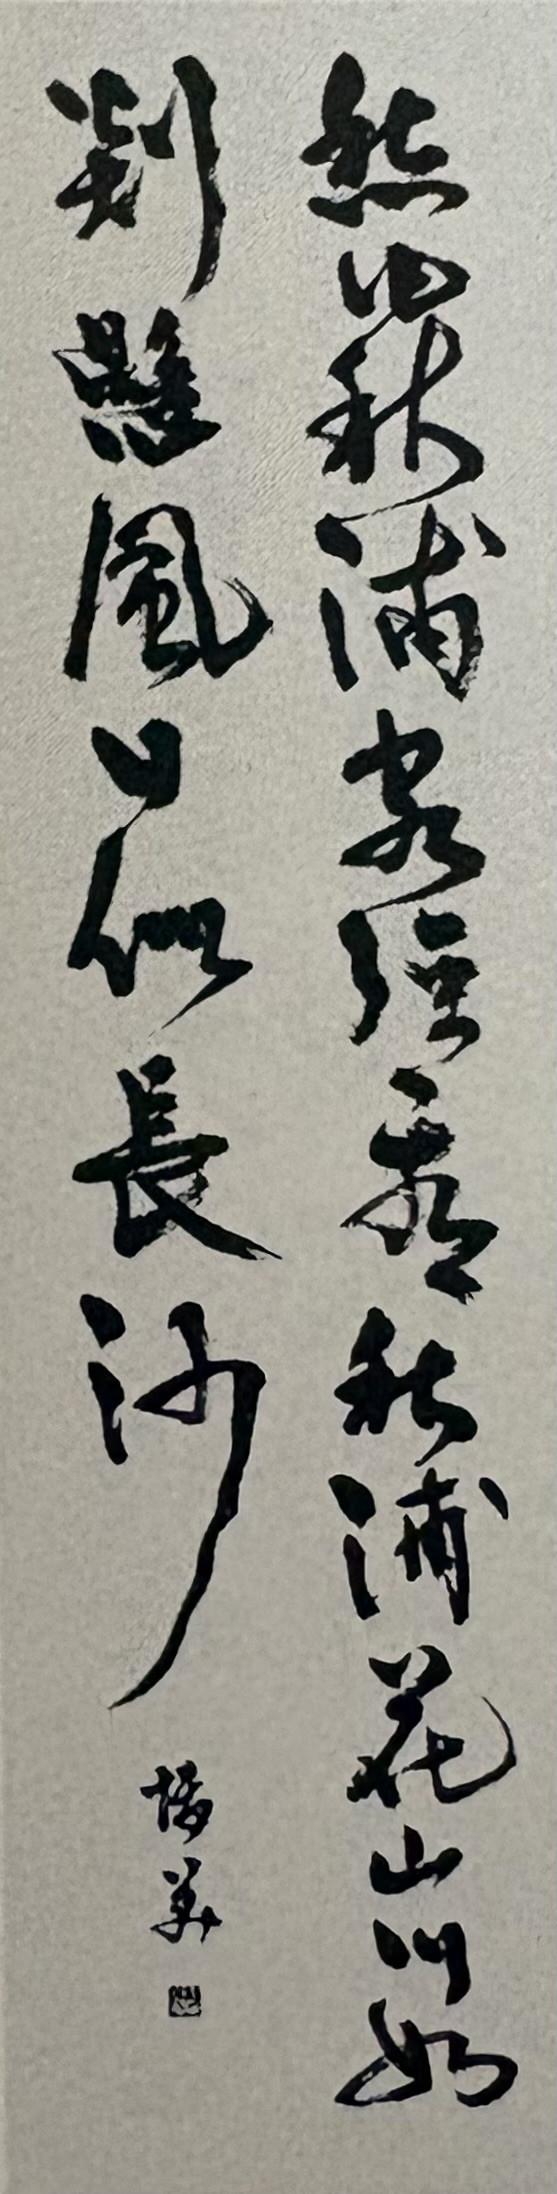 愁作秋浦客強看秋浦花山川如
剡縣風日似長沙